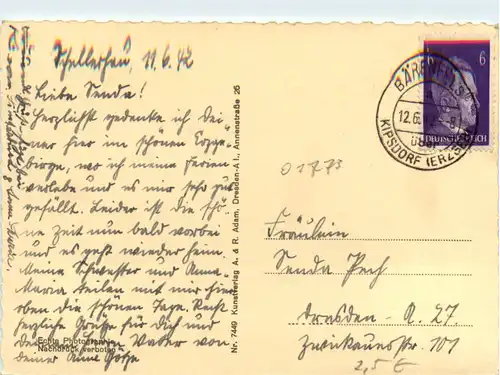 Schellerhau, 11.6.42
Liebe Senda!
Herzlichst gedenke ich Dei
ner hier im schönen Erzge-
birge, wo ich meine Ferien
verlebe und es mir sehr gut
gefällt. Leider ist die schö
ne Zeit nun bald vorbei
und es geht wieder heim.
Meine Schwester und Anna
Maria teilen mit mir hier
oben die schönen Tage. Recht
herzliche Grüße für Dich und
Deinen Vater von
Deiner Anne
Echte Photographie
Nachdruck verboten
Nr. 7449 Kunstverlag A. & R. Adam, Dresden-A. 1, Annenstraße 26
6
DEUTSCHES REICH
BÄRENFELS
12.6.
über
KIPSDORF (ERZGEB
01773
Fräulein
Senda Pech
Dresden - A. 27.
Zwickauerstr. 101
2,5 €